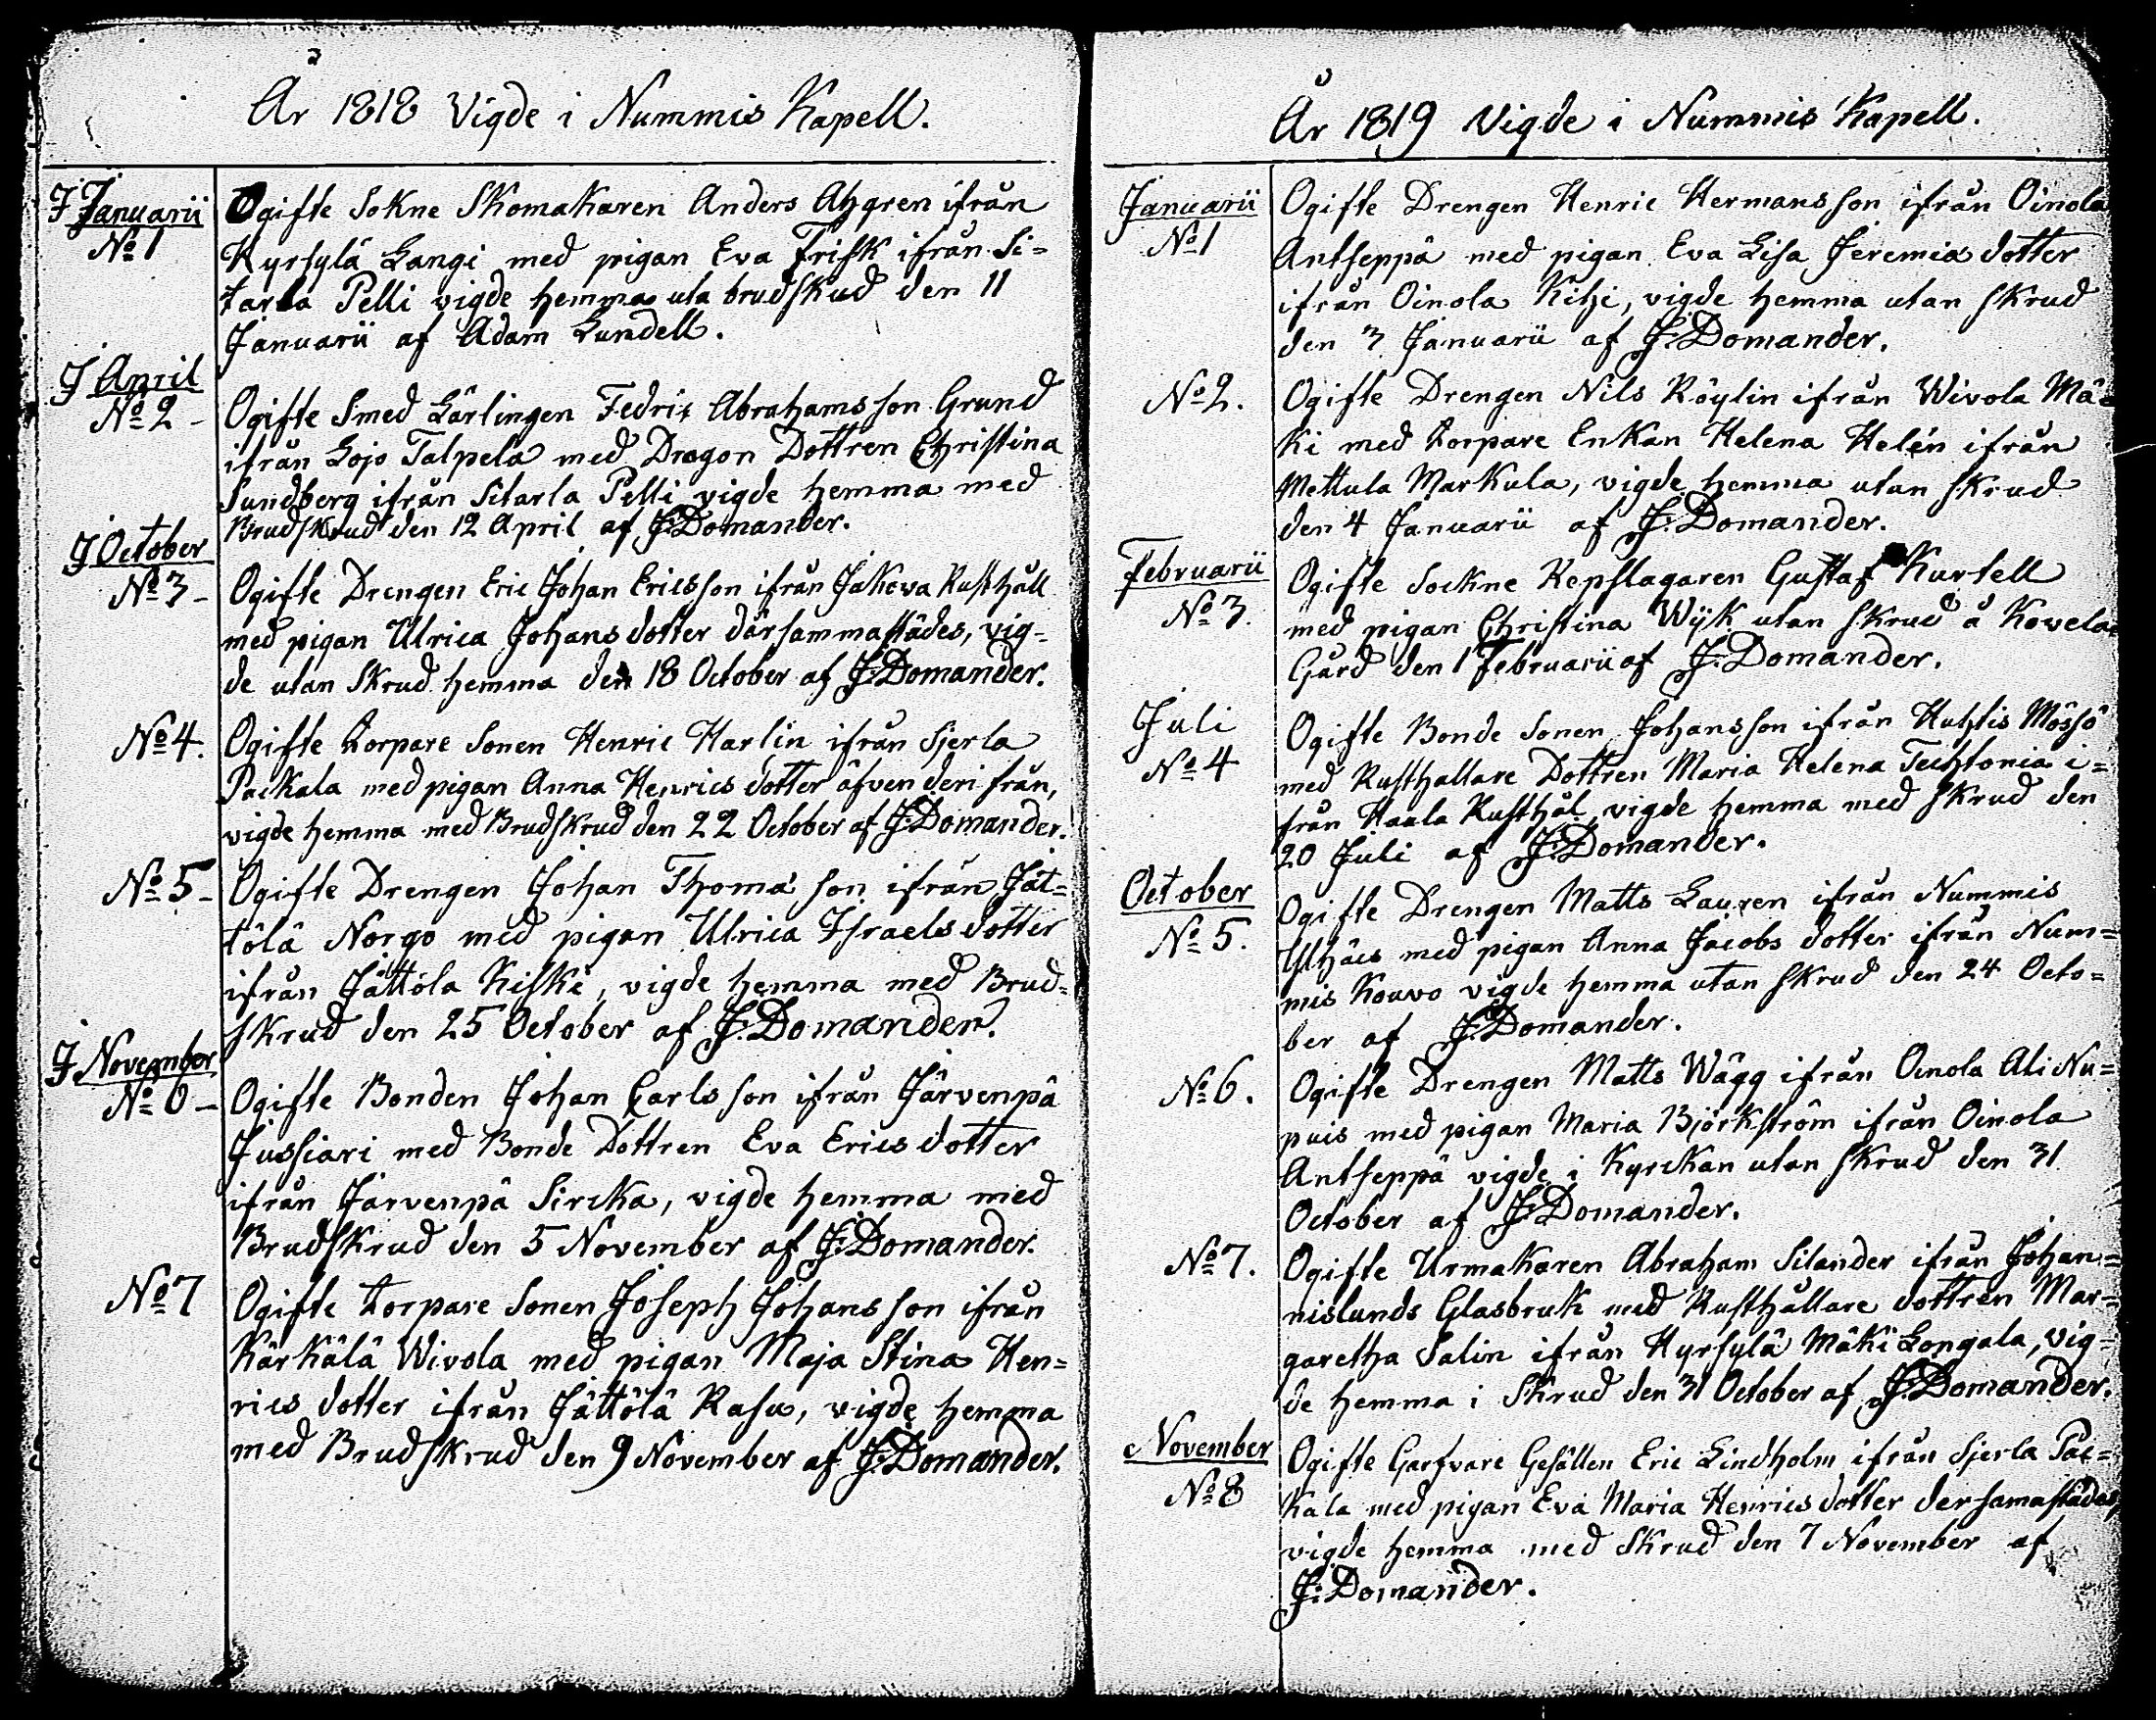 År 1818 Vigde i Nummis Kapell.
I Januarii
No 1
Ogifte Sokne Skomakaren Anders Ahgren ifrån
Hyrsylä Langi med pigan Eva Frisk ifrån Si=
tarla Pelli vigde hemma uta brudskud den 11
Januarii af Adam Lundell.
I April
No 2 -
Ogifte Smed Lärlingen Fedric Abrahamsson Grund
ifrån Lojo Talpela med Dragon Dottren Christina
Sundberg ifrån Sitarla Pelli vigde hemma med
Brudskrud den 12 April af J: Domander.
I October
No 3 -
Ogifte Drengen Eric Johan Ericsson ifrån Jakova Rusthåll
med pigan Ulrica Johans dotter därsammastädes, vig=
de utan Skrud hemma den 18 October af J: Domander.
No 4.
Ogifte torpare Sonen Henric Harlin ifrån Sjerla
Packala med pigan Anna Henrics dotter äfven derifrån,
vigde hemma med Brudskrud den 22 October af J: Domander.
No 5 -
Ogifte Drengen Johan Thoma son ifrån Jät=
tölä Norgo med pigan Ulrica Israels dotter
ifrån Jättölä Kiski, vigde hemma med Brud=
skrud den 25 October af J: Domander.
I November
No 6 -
Ogifte Bonden Johan Carls son ifrån Järvenpä
Jussiari med Bonde Dottren Eva Erics dotter
ifrån Järvenpä Sircka, vigde hemma med
Brudskrud den 5 November af J: Domander.
No 7
Ogifte torpare Sonen Joseph Johans son ifrån
Kärkälä Wivola med pigan Maja Stina Hen=
rics dotter ifrån Jättölä Rasu, vigde hemma
med Brudskrud den 9 November af J: Domander.
År 1819 Vigde i Nummis Kapell.
Januarii
No 1
Ogifte Drengen Henric Hermansson ifrån Oinola
Antseppä med pigan Eva Lisa Jeremiæ dotter
ifrån Oinola Kihi, vigde hemma utan skrud
den 3 Januarii af J: Domander.
No 2.
Ogifte Drengen Nils Röylin ifrån Wivola Mä=
ki med torpare Enkan Helena Helén ifrån
Mettula Markula, vigde hemma utan skrud
den 4 Januarii af J: Domander.
Februarii
No 3.
Ogifte Sockne Repslagaren Gustaf Kurtell
med pigan Christina Wijk utan skrud å Kovela=
Gård den 1 Februarii af J: Domander.
Juli
No 4
Ogifte Bonde Sonen Johansson ifrån Huhtis Mössö
med Rusthallare Dottren Maria Helena Techtonia i=
från Haula Rusthål, vigde hemma med skrud den
20 Juli af J: Domander.
October
No 5.
Ogifte Drengen Matts Lauren ifrån Nummis
med pigan Anna Jacobs dotter ifrån Num=
mis Kouvo vigde hemma utan skrud den 24 Octo=
ber af J: Domander.
No 6.
Ogifte Drengen Matts Wägg ifrån Oinola Ali Nu=
puis med pigan Maria Björkström ifrån Oinola
Antseppä vigde i Kyrckan utan skrud den 31
October af J: Domander.
No 7.
Ogifte Urmakaren Abraham Silander ifrån Johan=
nislunds Glasbruk med Rusthållare dottren Mar=
garetha Salin ifrån Hyrsylä Mäki Longala, vig=
de hemma i Skrud den 31 October af J: Domander.
November
No 8
Ogifte Garfvare Gesällen Eric Lindholm ifrån Sjerla Pac=
kala med pigan Eva Maria Henrics dotter dersamastädes,
vigde hemma med Skrud den 7 November af
J: Domander.